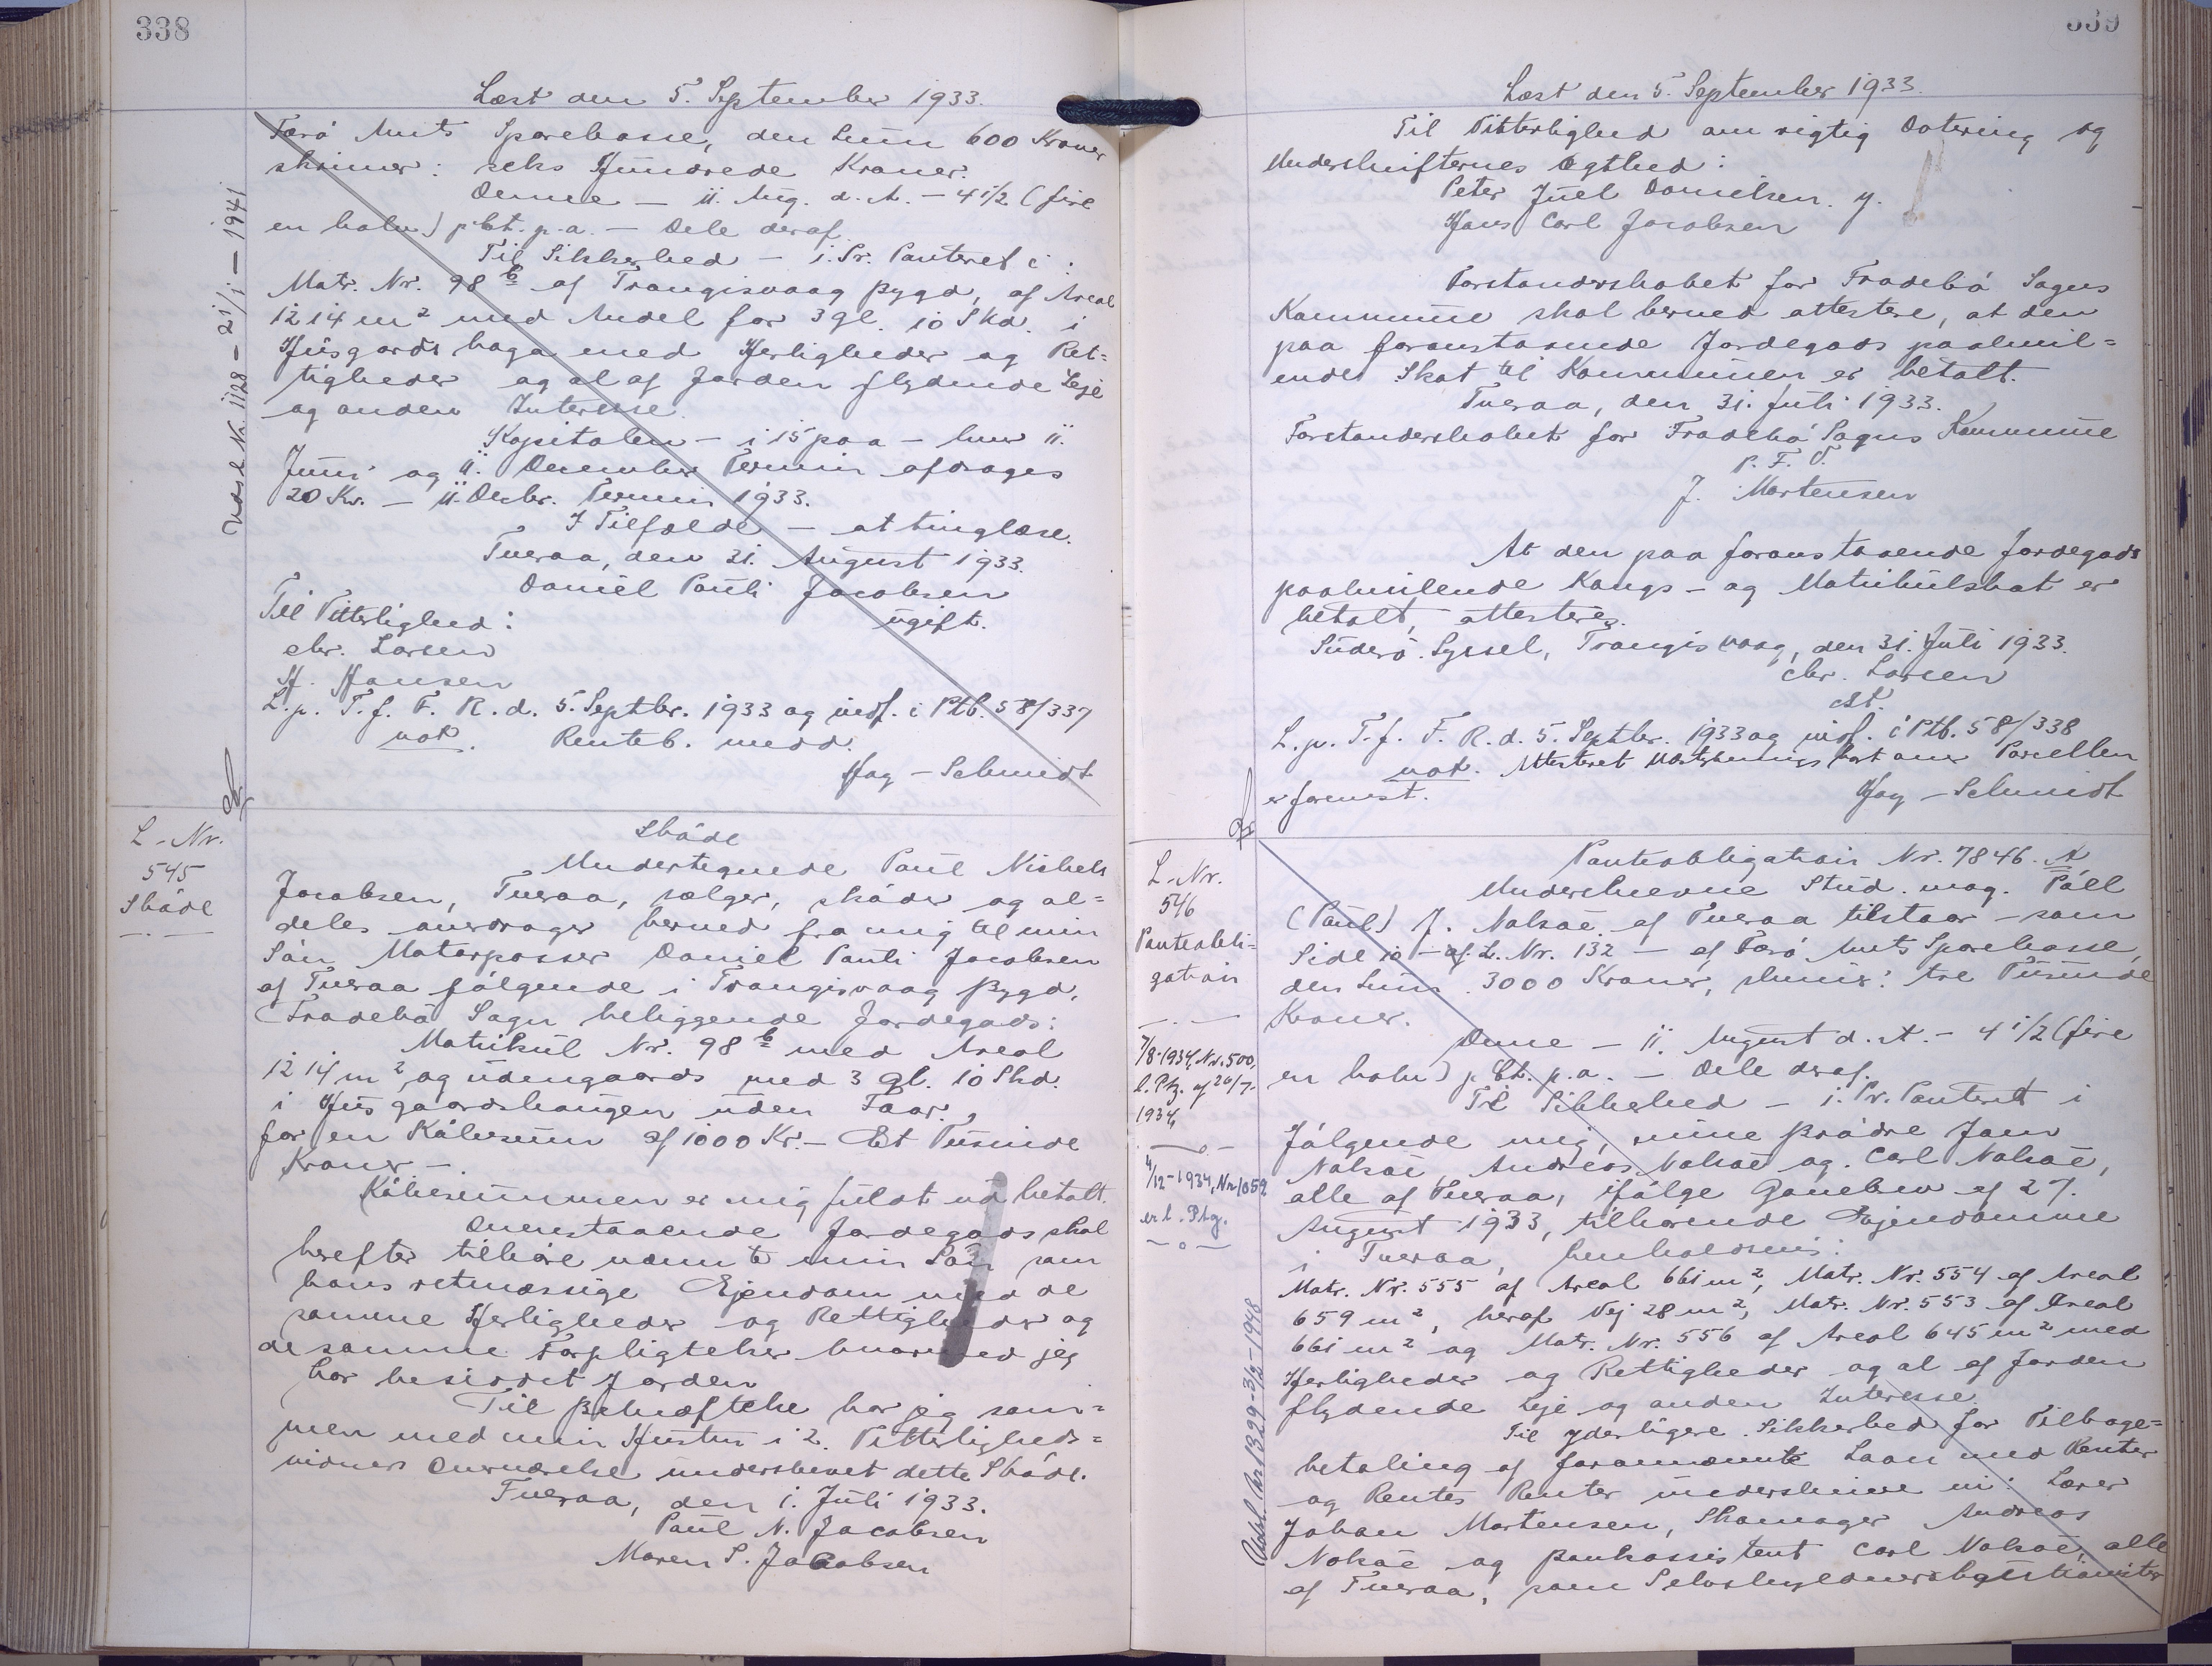 338
Læst den 5. September 1933.
Færø Amts Sparekasse, den Sum 600 Kroner
skriver: seks Hundrede Kroner.
Denne — 11. Aug. d. A. — 4 1/2 (fire
en halv) pCt. p. a. — Dele deraf.
Til Sikkerhed — 1. Pr. Panteret i:
Matr. Nr. 98 b af Trangisvaag Bygd, af Areal
1214 m² med Andel for 3 gl. 10 Skd. i
Húsgards haga med Herligheder og Ret=
tigheder og al af Jorden flydende Leje
og anden Interesse.
Kapitalen — i 15 paa — hver 11.
Juni og 11. December Termin afdrages
20 Kr. — 11. Decbr. Termin 1933.
I Tilfælde — at tinglæse.
Tveraa, den 21. August 1933.
Daniel Pauli Jacobsen
ugift.
Til Vitterlighed:
Chr. Larsen
H. Hansen
L. p. T. f. F. R. d. 5. Septbr. 1933 og indf. i Ptb. 58/337
not. Renteb. medd.
Hag-Schmidt
Udsl. Nr. 1128 – 21/1 – 1941
L-Nr.
545
Skøde
Skøde
Undertegnede Paul Nichels
Jacobsen, Tveraa, sælger, skøder og al=
deles overdrager herved fra mig til min
Søn Motorpasser Daniel Pauli Jacobsen
af Tveraa følgende i Trangisvaag Bygd,
Frodebø Sogn beliggende Jordegods:
Matrikul Nr. 98 b med Areal
1214 m² og udengaards med 3 gl. 10 Skd.
i Husgaardshaugen uden Faar.,
for en Købesum af 1000 Kr. — Et Tusinde
Kroner —.
Købesummen er mig fuldt ud betalt.
Ovenstaaende Jordegods skal
herefter tilhøre nævnte min Søn som
hans retmæssige Ejendom med de
samme Herligheder og Rettigheder og
de samme Forpligtelser hvormed jeg
har besiddet Jorden
Til Bekræftelse har jeg sam=
men med min Hustru i 2. Vitterligheds=
vidners Overværelse underskrevet dette Skøde.
Tveraa, den 1. Juli 1933.
Paul N. Jacobsen
Maren S. Jacobsen
339
Læst den 5. September 1933.
Til Vitterlighed om rigtig Datering og
Underskrifternes Ægthed:
Peter Juel Danielsen. y.
Hans Carl Jacobsen
Forstanderskabet for Frodebø Sogns
Kommune skal herved attestere, at den
paa foranstaaende Jordegods paahvil=
ende Skat til Kommunen er betalt.
Tveraa, den 31. Juli 1933.
Forstanderskabet for Frodebø Sogns Kommune
P. F. V.
J. Mortensen
At den paa foranstaaende Jordegods
paahvilende Kongs- og Matrikulskat er
betalt, attesteres.
Suderø Syssel, Trangisvaag, den 31. Juli 1933.
Chr. Larsen
cst.
L. p. T. f. F. R. d. 5. Septbr. 1933 og indf. i Ptb. 58/338
not. Attesteret Udstykningskort over Parcellen
er forevist.
Hag-Schmidt
L-Nr.
546
Panteobli=
gation
7/8-1934, Nr. 500,
l. Ptg. af 26/7-
1934,
4/12-1934, Nr. 1059
erl. Ptg.
Udsl. Nr. 1329-3/3-1948
Panteobligation Nr. 7846. A
Underskrevne Stud. mag. Páll
(Paul) J. Nolsøe af Tveraa tilstaar — som
Side 10 — af L. Nr. 132 — af Færø Amts Sparekasse,
den Sum 3000 Kroner, skriver: tre Tusinde
Kroner.
Denne — 11. August d. A. — 4 1/2 (fire
en halv) pCt. p. a. — Dele deraf.
Til Sikkerhed — 1. Pr. Panteret i
følgende mig, mine Brødre Jens
Nolsøe, Andreas Nolsøe og Carl Nolsøe,
alle af Tveraa, ifølge Gavebrev af 27.
August 1933, tilhørende Ejendomme
i Tveraa, henholdsvis:
Matr. Nr. 555 af Areal 661 m², Matr. Nr. 554 af Areal
659 m², heraf Vej 28 m², Matr. Nr. 553 af Areal
661 m² og Matr. Nr. 556 af Areal 645 m² med
Herligheder og Rettigheder og al af Jorden
flydende Leje og anden Interesse.
Til yderligere Sikkerhed for Tilbage=
betaling af forannævnte Laan med Renter
og Rentes Renter underskrive vi: Lærer
Johan Mortensen, Skomager Andreas
Nolsøe og Bankassistent Carl Nolsøe, alle
af Tveraa, som Selvskyldnerkautionister